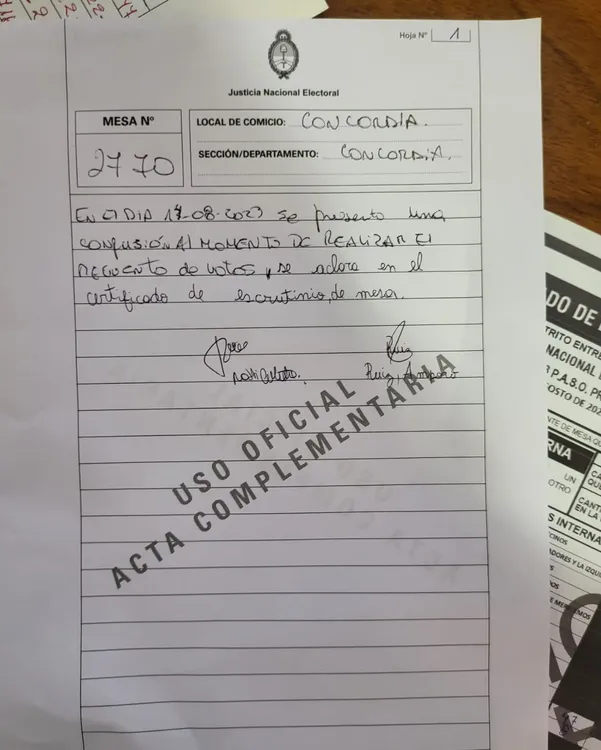 Hoja Nº 1
Justicia Nacional Electoral
MESA Nº
2770
LOCAL DE COMICIO: CONCORDIA.
SECCIÓN/DEPARTAMENTO: CONCORDIA.
EN El DIA 17-08-2023 se presento una
CONFUSIÓN Al MOMENTO DE REALIZAR El
RECUENTO de votos, se aclara en el
certificado de escrutinio, de mesa.
Ruiz
Ruiz, Amparo
USO OFICIAL
ACTA COMPLEMENTARIA
DO DE
TRITO ENTRE
NACIONAL
P.A.S.O. PR
OSTO DE 202
NTE DE MESA QU
RNA
UN
OTRO
CA
QU
CANT
EN LA
S INTERNA
CINOS
ADORES Y LA IZQUI